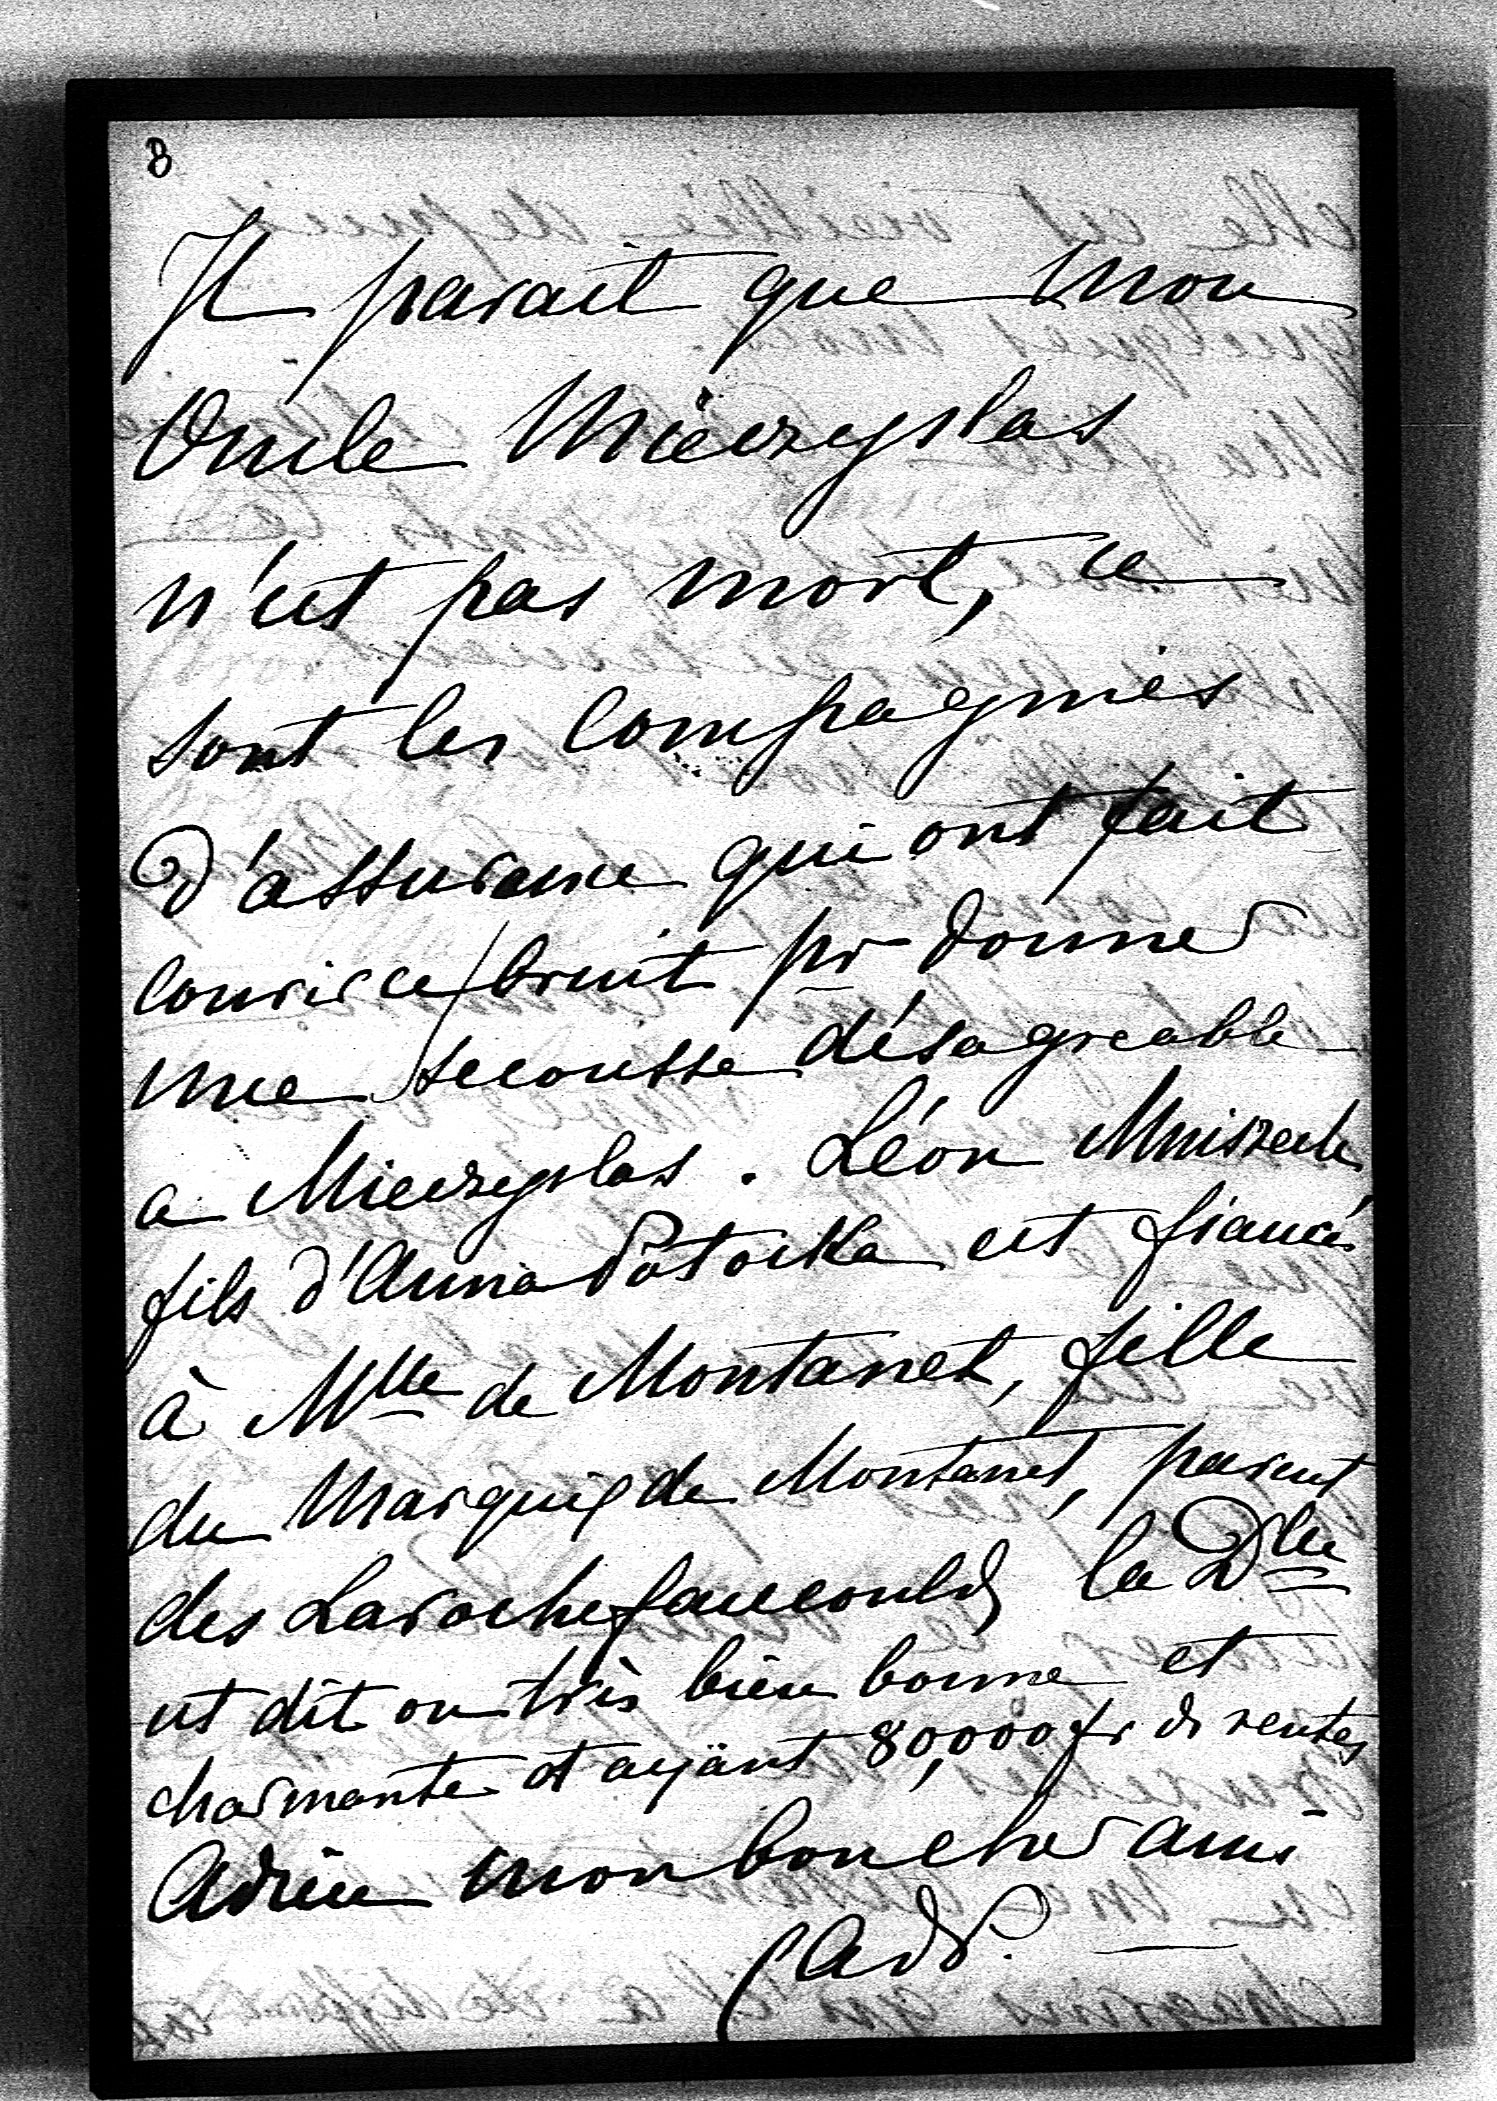 8
Il parait que mon
Oncle Miéczyslas
n'est pas mort, ce
sont les Compagnies
d'assurance qui ont fait
courir ce bruit pr donner
une secousse désagreable
a Mieczyslas. Léon Mniszech
fils d'Anna Potocka est fiancé
à Mlle de Montanet, fille
du Marquis de Montanet, parent
des Larochefaucould, la Dlle
est dit on très bien bonne et
charmante et ayant 80,000 fr de rentes
Adieu mon bon cher ami